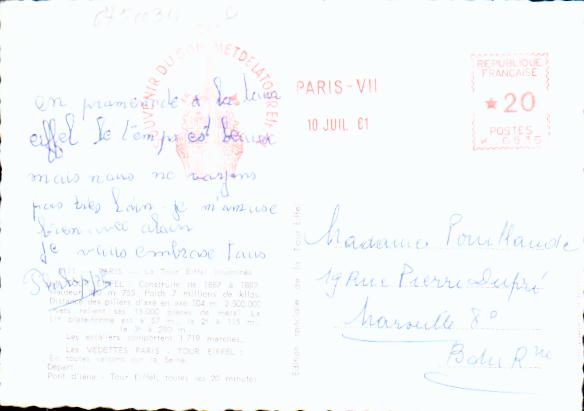 SOUVENIR DU SOMMET DE LA TOUR EIFFEL
PARIS - VII
10 JUIL 61
REPUBLIQUE
FRANÇAISE
★ 20
POSTES
en promenade a la tour
eiffel le temps est beau
mais nous ne voyons
pas tres loin je m'amuse
bien avec alain
je vous embrasse tous
Philippe
PARIS - La Tour Eiffel illuminée
EIFFEL Construite de 1887 à 1889
7 millions de kilos
Distance des piliers d'axe en axe 104 m 2.500.000
rivets relient ses 15.000 pièces de métal La
1re plate-forme est à 57 m la 2e à 115 m
la 3e à 280 m
Les escaliers comportent 1.719 marches
Les VEDETTES PARIS - TOUR EIFFEL :
En toutes saisons sur la Seine
Départ
Pont d'Iéna - Tour Eiffel, toutes les 20 minutes
Edition officielle de la Tour Eiffel
Madame Pouillaude
19 Rue Pierre Dupré
Marseille 8e
B du Rne